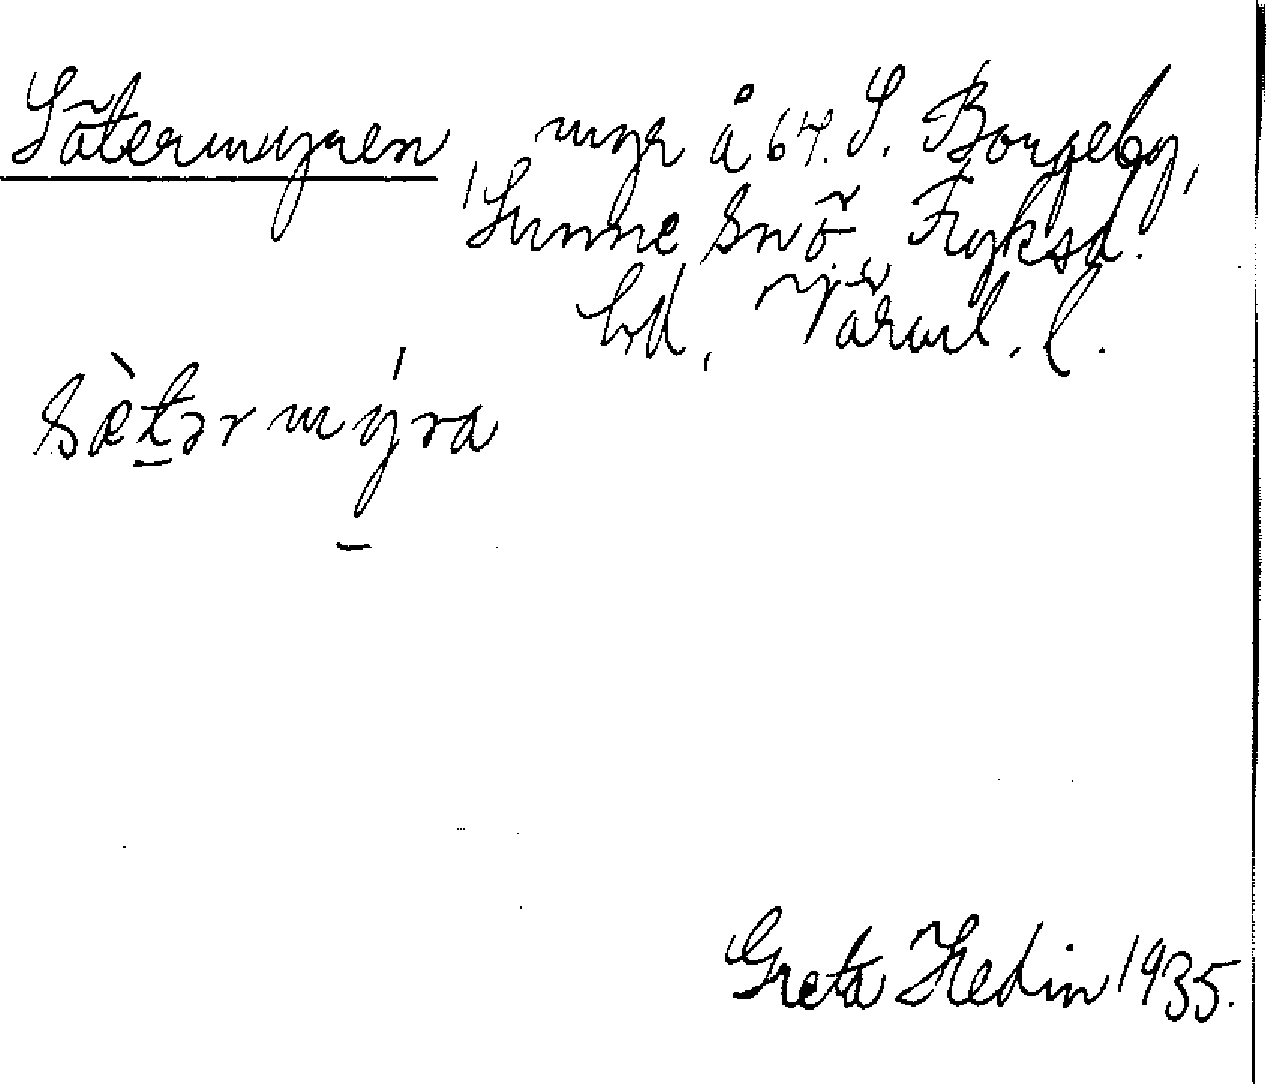 Sätermyren, myr å 64. S. Borgeby,
Sunne sn ö. Fryksd.
hd, Värml. l.
sæ̀tər mýra
Greta Hedin 1935.